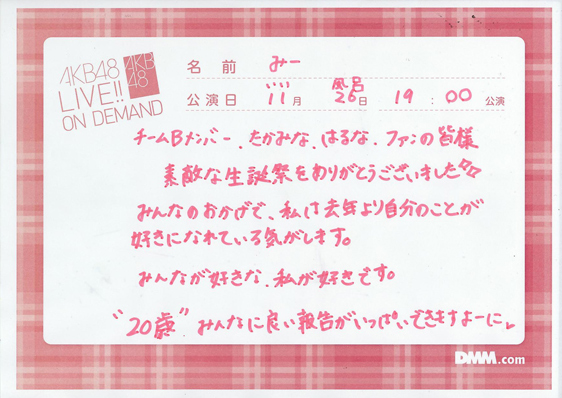 AKB48
LIVE!!
ON DEMAND
AKB
48
名前 みー
いい 風呂
公演日 11月 26日 19:00 公演
チームBメンバー、たかみな、はるな、ファンの皆様
素敵な生誕祭をありがとうございました
みんなのおかげで、私は去年より自分のことが
好きになれている気がします。
みんなが好きな、私が好きです。
"20歳" みんなに良い報告がいっぱいできますよーに
DMM.com